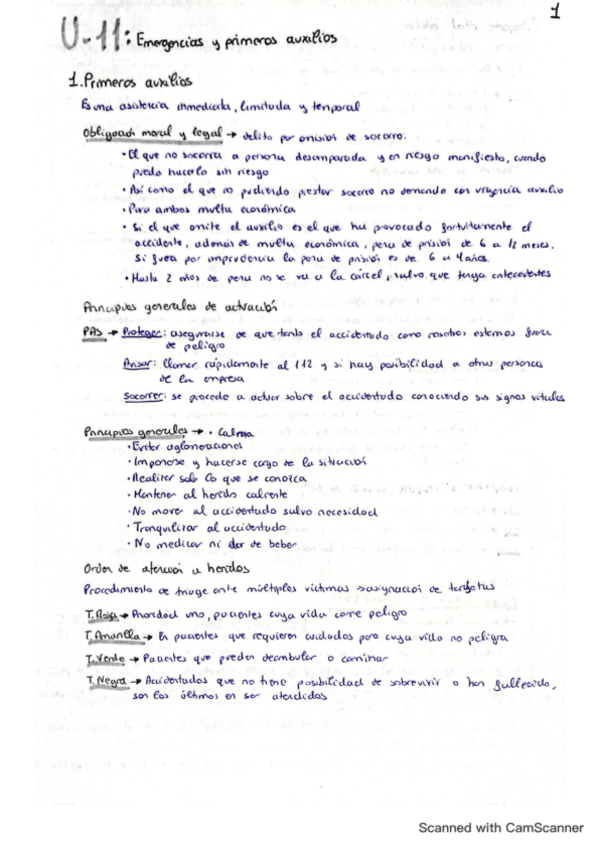 1
U-11: Emergencias y primeros auxilios
1. Primeros auxilios
Es una asistencia inmediata, limitada y temporal
Obligación moral y legal → delito por omisión de socorro:
• El que no socorra a persona desamparada y en riesgo manifiesto, cuando
pueda hacerlo sin riesgo
• Así como el que no pudiendo prestar socorro no demande con urgencia auxilio
• Para ambos multa económica
• Si el que omite el auxilio es el que ha provocado fortuitamente el
accidente, además de multa económica, pena de prisión de 6 a 12 meses.
Si fuera por imprudencia la pena de prisión es de 6 a 4 años.
• Hasta 2 años de pena no se va a la cárcel, salvo que tenga antecedentes
Principios generales de actuación
PAS → Proteger: asegurarse de que tanto el accidentado como nosotros estemos fuera
de peligro
Avisar: llamar rápidamente al 112 y si hay posibilidad a otras personas
de la empresa
Socorrer: se procede a actuar sobre el accidentado conociendo sus signos vitales
Principios generales → • Calma
• Evitar aglomeraciones
• Imponerse y hacerse cargo de la situación
• Realizar solo lo que se conozca
• Mantener al herido caliente
• No mover al accidentado salvo necesidad
• Tranquilizar al accidentado
• No medicar ni dar de beber
Orden de atención a heridos
Procedimiento de triage ante múltiples víctimas → asignación de tarjetas
T. Roja → Prioridad uno, pacientes cuya vida corre peligro
T. Amarilla → En pacientes que requieren cuidados pero cuya vida no peligra
T. Verde → Pacientes que pueden deambular o caminar
T. Negra → Accidentados que no tiene posibilidad de sobrevivir o han fallecido,
son los últimos en ser atendidos
Scanned with CamScanner